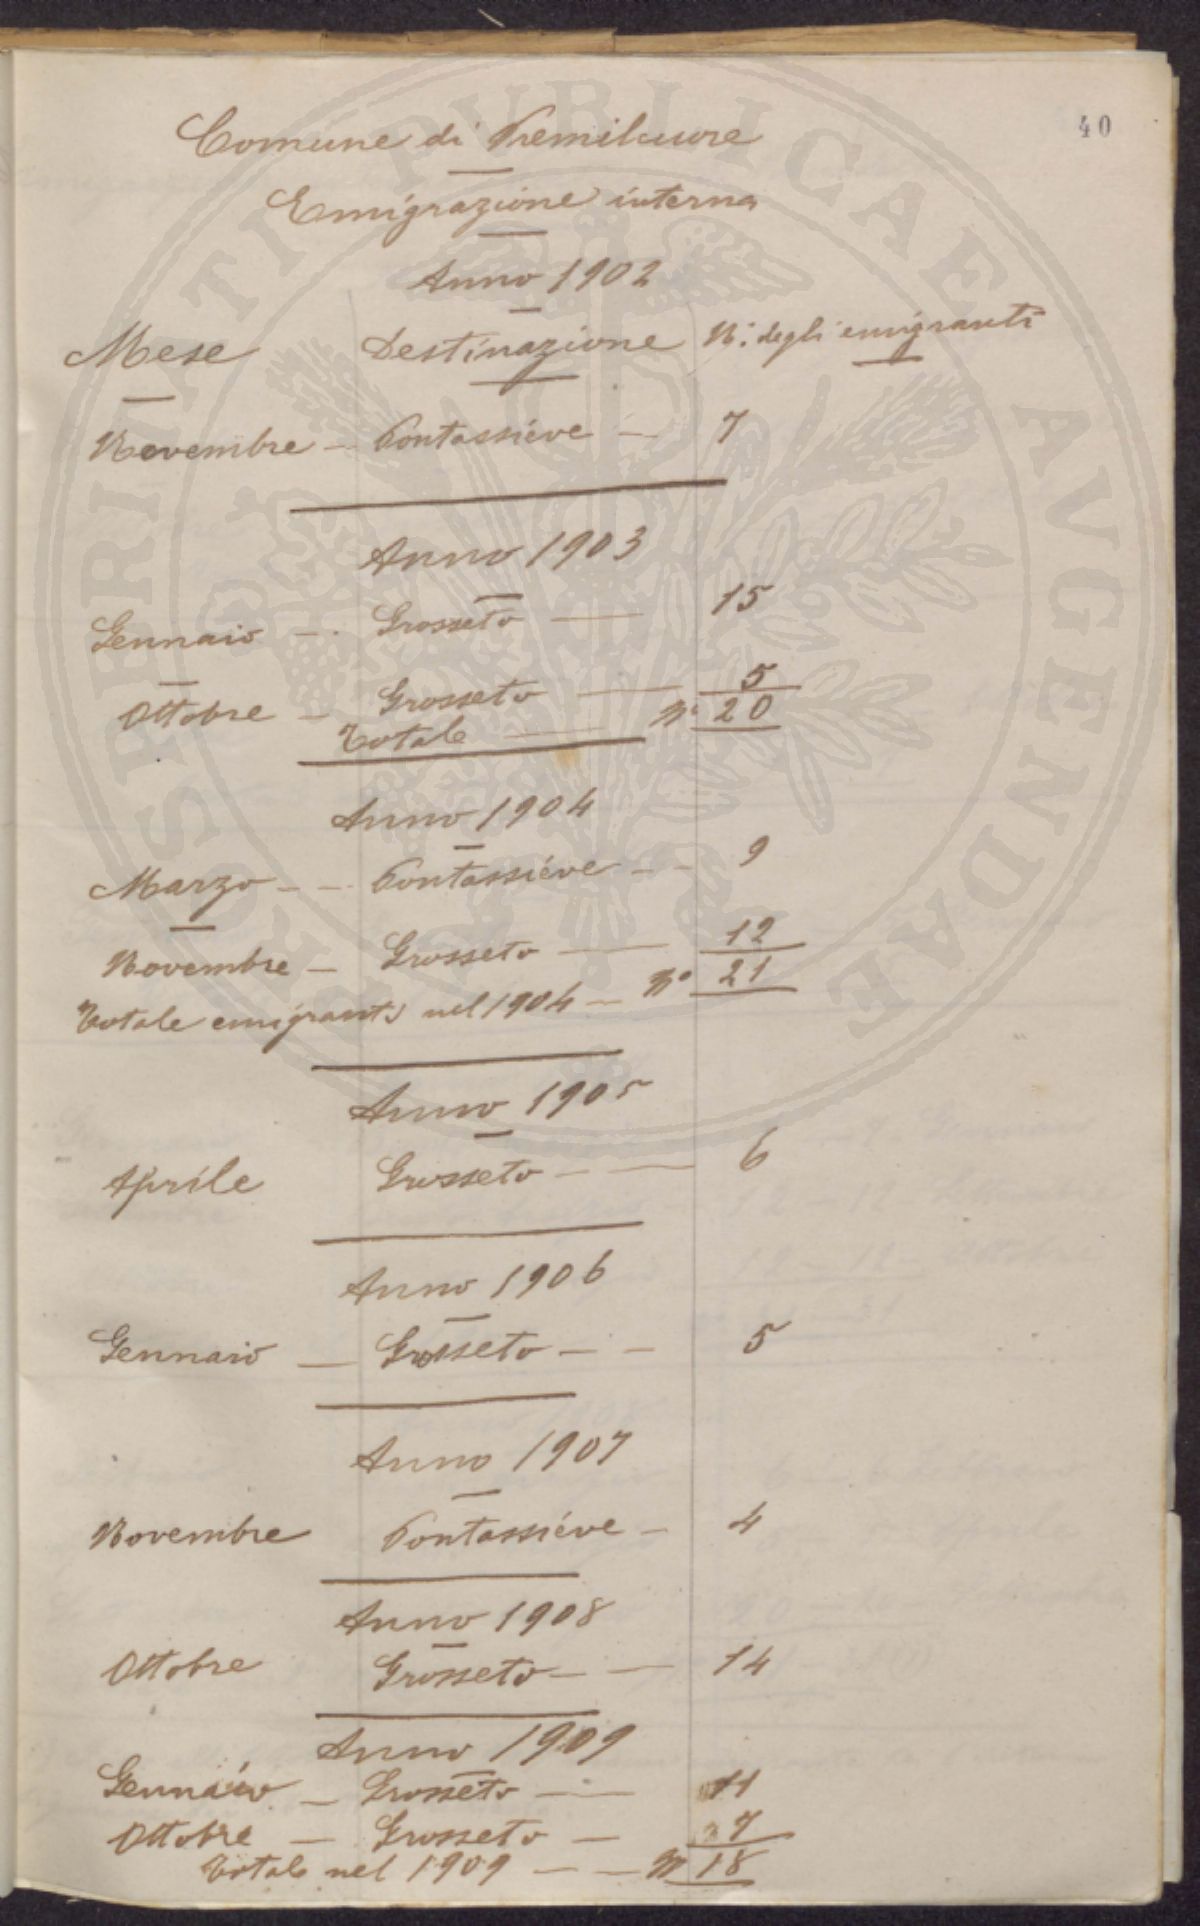 40
Comune di Premilcuore
Emigrazione interna
Anno 1902
Mese Destinazione N.º degli emigranti
Novembre - Pontassiéve - 7
Anno 1903
Gennaio - Grosseto - 15
Ottobre - Grosseto - 5
Totale - Nº 20
Anno 1904
Marzo - - Pontassiéve - - 9
Novembre - Grosseto - 12
Totale emigranti nel 1904 - Nº 21
Anno 1905
Aprile Grosseto - - 6
Anno 1906
Gennaio - Grosseto - - 5
Anno 1907
Novembre Pontassiéve - 4
Anno 1908
Ottobre Grosseto - - 14
Anno 1909
Gennaio - Grosseto - - 11
Ottobre - Grosseto - 7
Totale nel 1909 - - N 18
PUBLICAE AVGENDAE PROSPERITATI